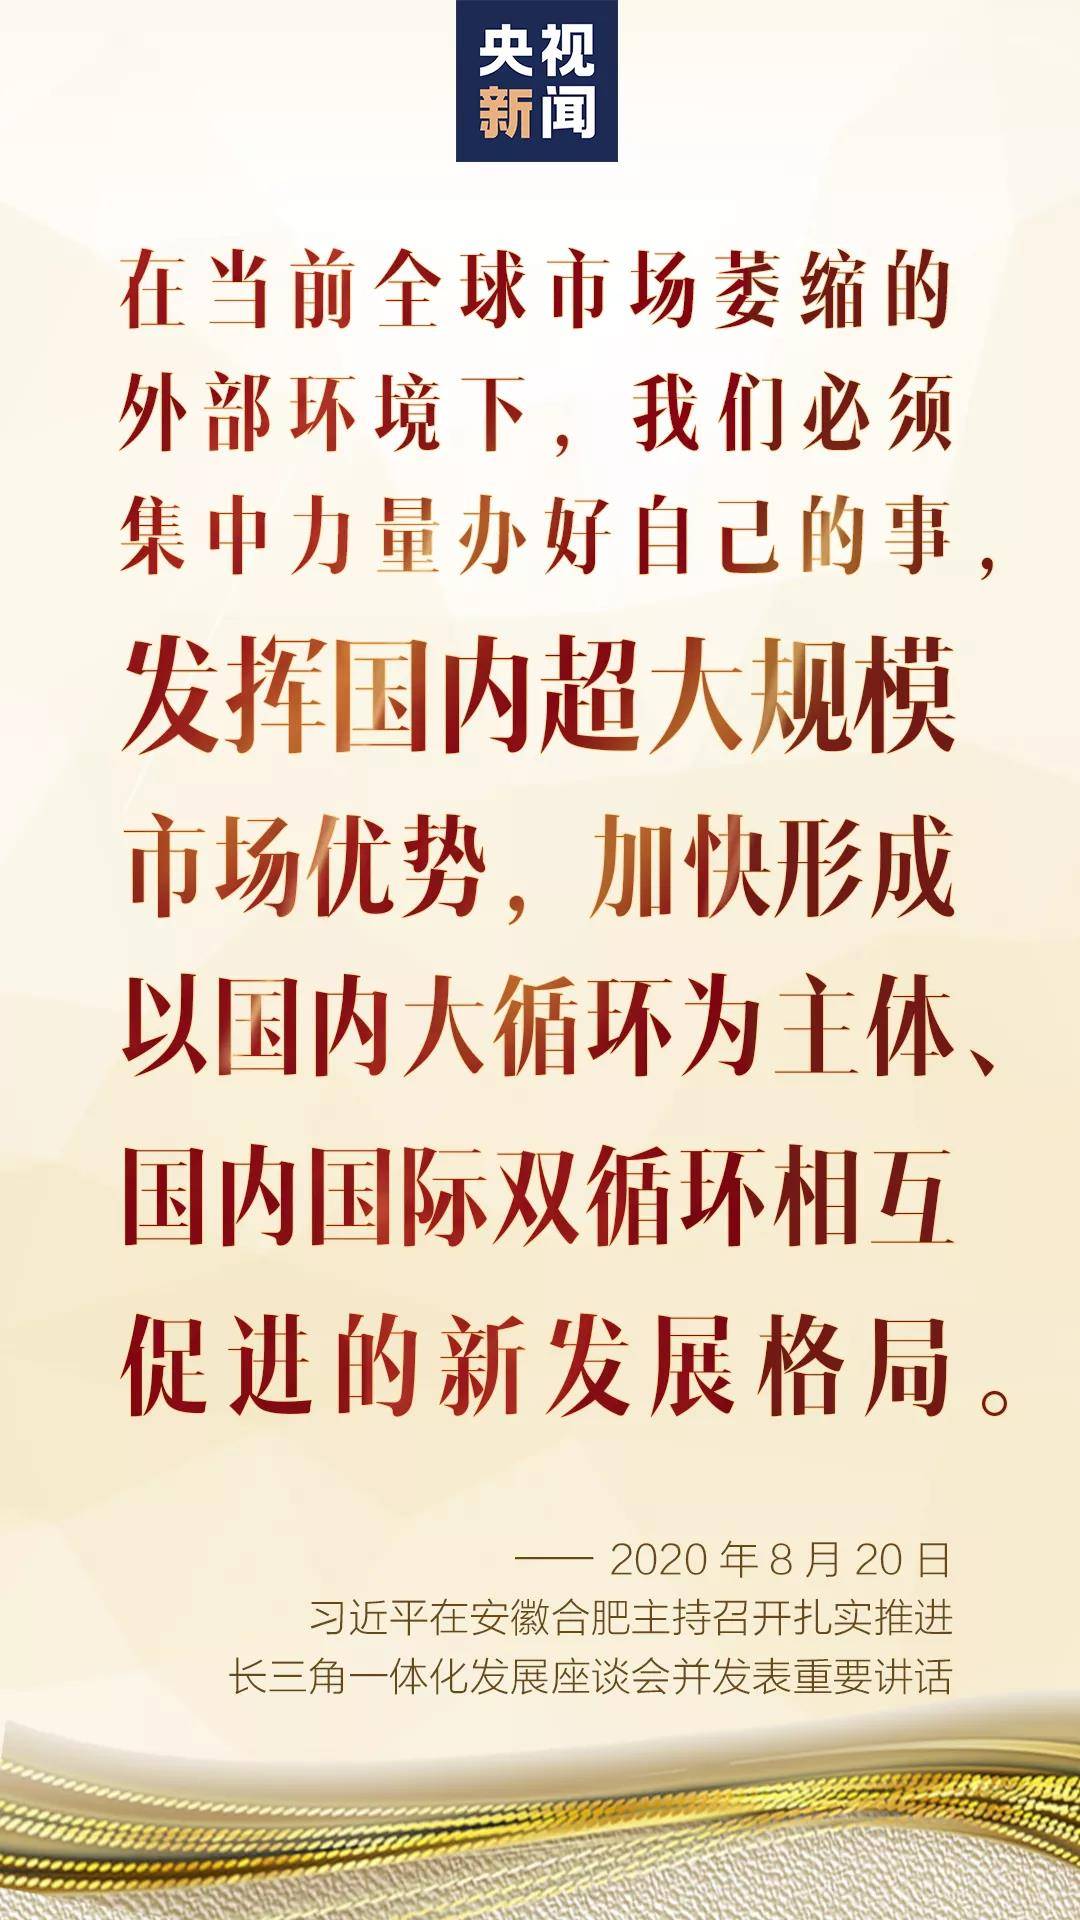 央视
新闻
在当前全球市场萎缩的
外部环境下，我们必须
集中力量办好自己的事，
发挥国内超大规模
市场优势，加快形成
以国内大循环为主体、
国内国际双循环相互
促进的新发展格局。
—— 2020 年 8 月 20 日
习近平在安徽合肥主持召开扎实推进
长三角一体化发展座谈会并发表重要讲话